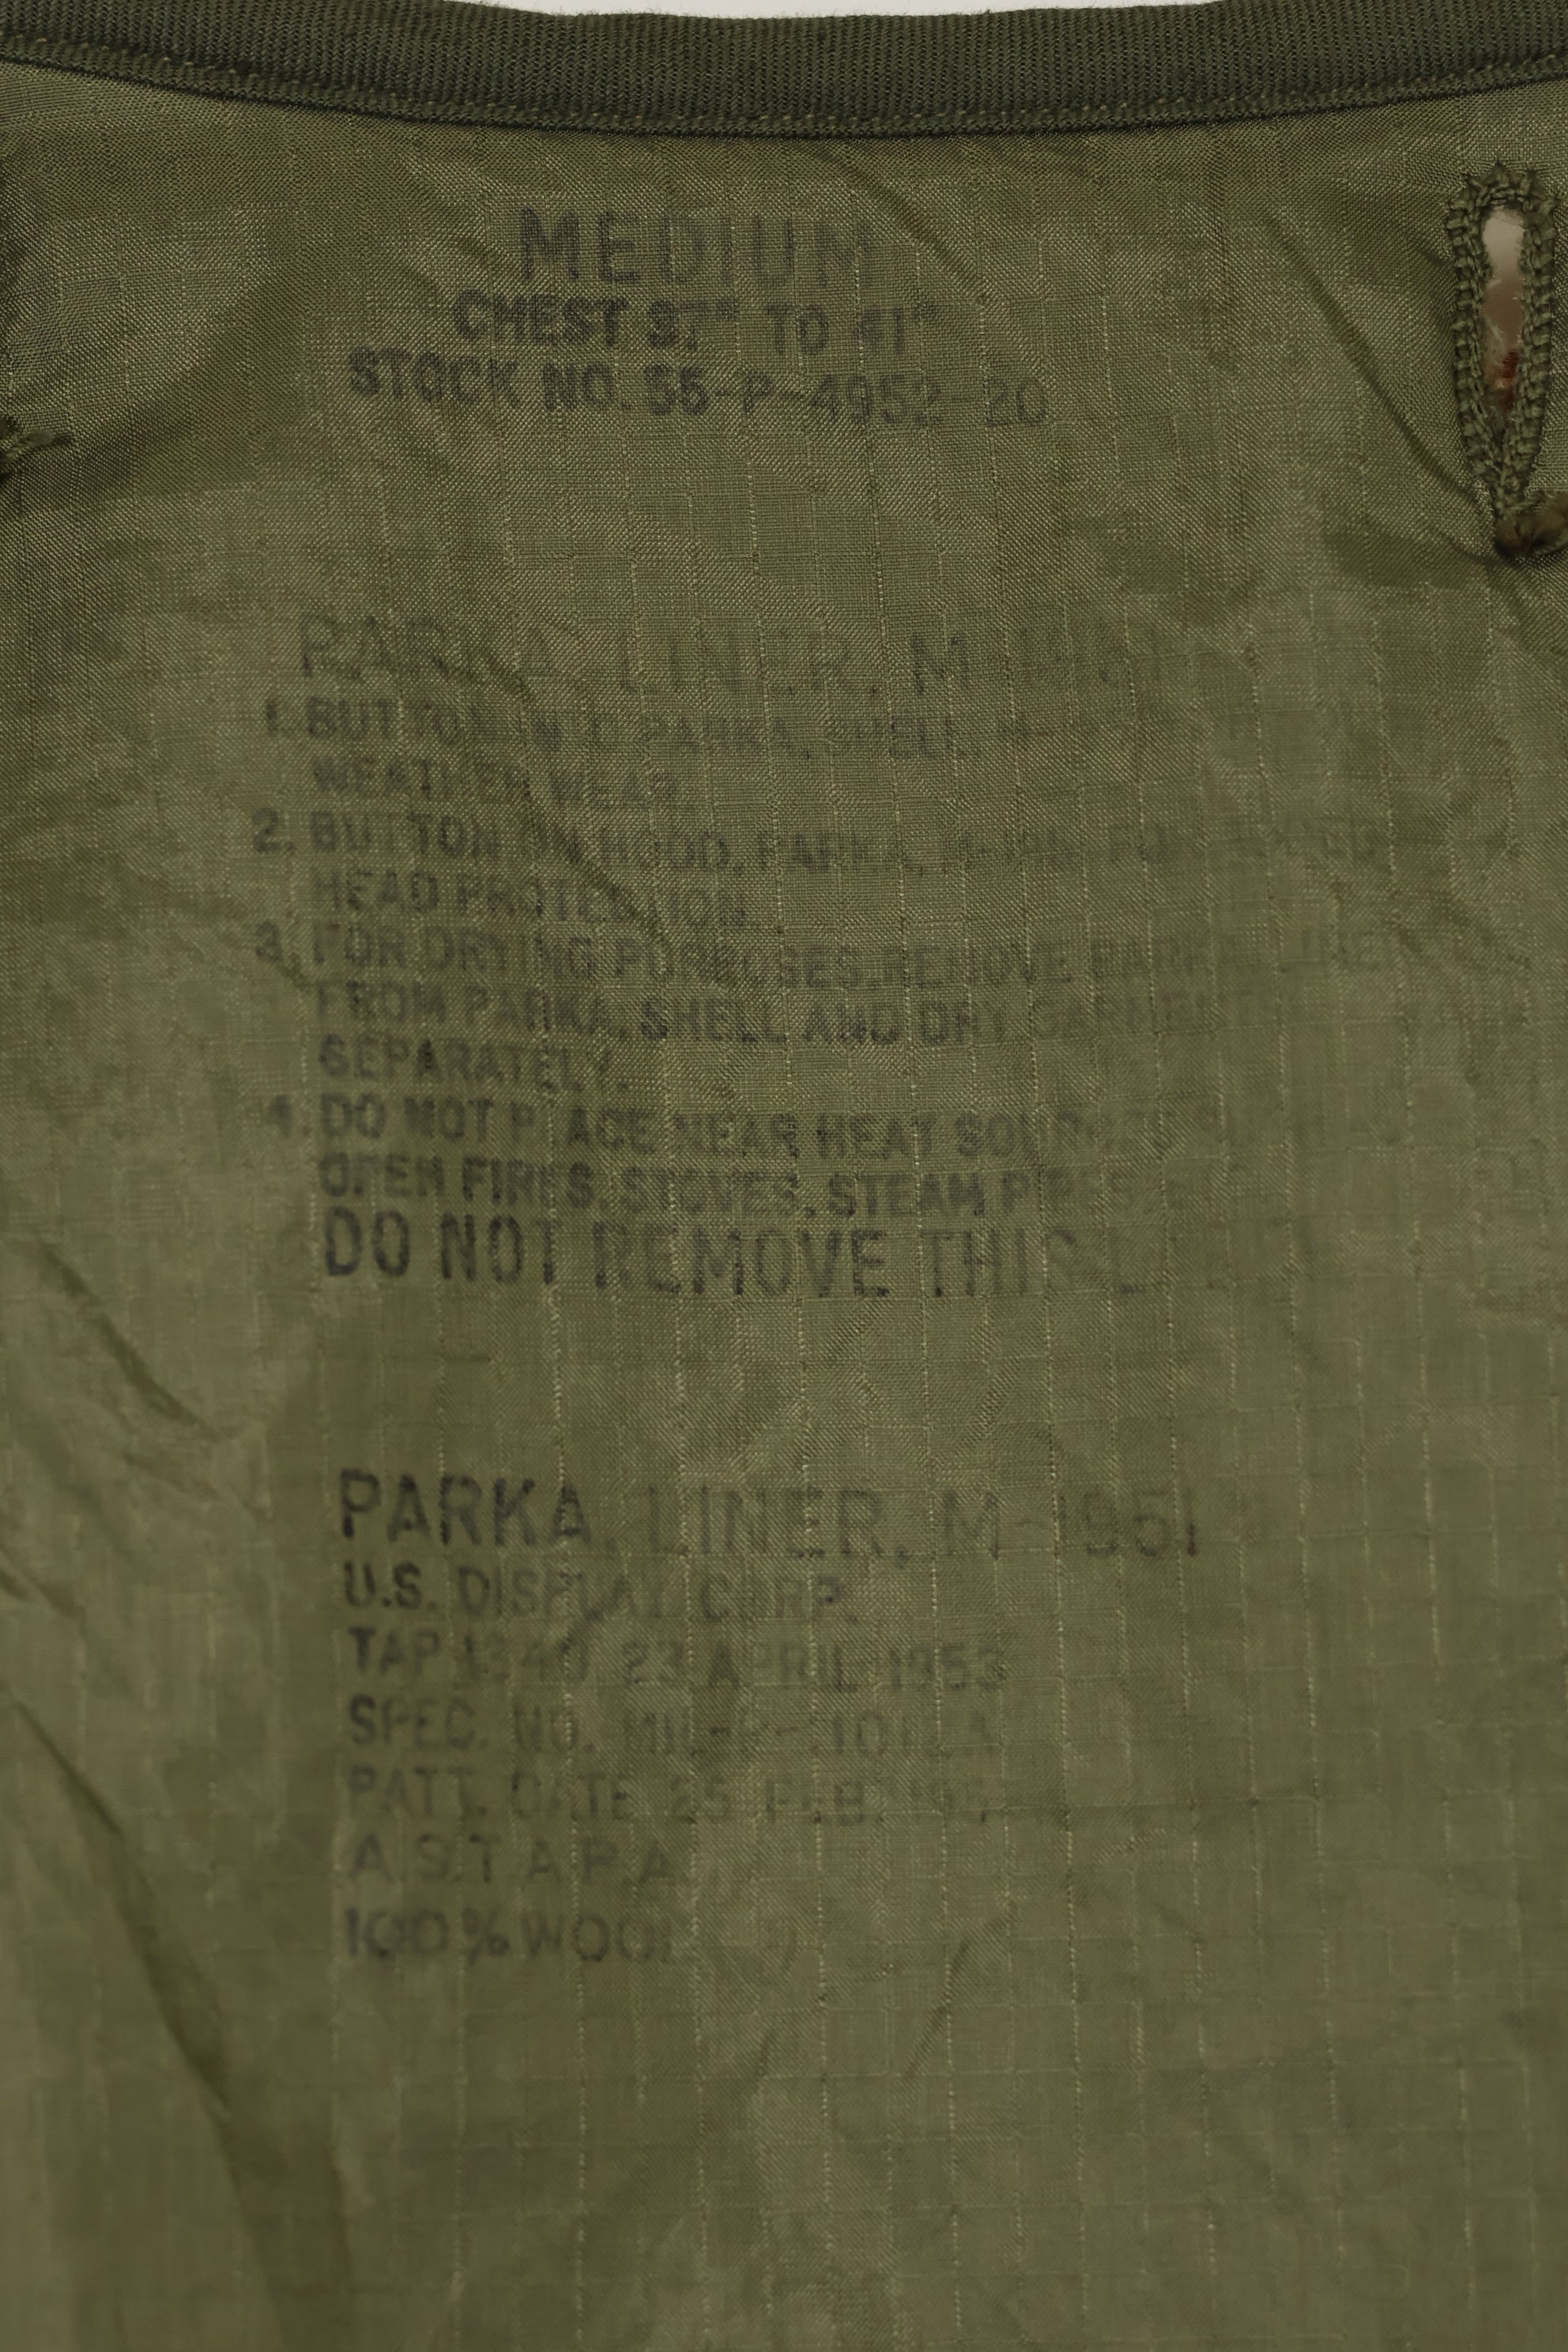 MEDIUM
CHEST 37" TO 41"
STOCK NO. 55-P-4952-20
PARKA, LINER, M-1951
1. BUTTON INTO PARKA, SHELL,
WEATHER WEAR.
2. BUTTON ON HOOD, PARKA, FOR ADDED
HEAD PROTECTION.
3. FOR DRYING PURPOSES, REMOVE PARKA, LINER
FROM PARKA, SHELL AND DRY GARMENTS
SEPARATELY.
4. DO NOT PLACE NEAR HEAT SOURCES
OPEN FIRES, STOVES, STEAM PIPES
DO NOT REMOVE THIS
PARKA, LINER, M-1951
U.S. DISPLAY CORP.
TAP 23 APRIL 1953
SPEC. NO.
PATT. DATE 25 FEB.
ASTAPA
100% WOOL